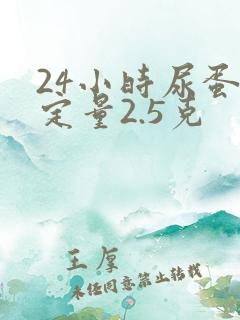 24小时尿蛋
定量2.5克
王厚
未经同意禁止转载